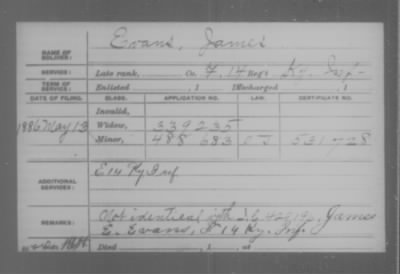 Evans, James
NAME OF SOLDIER:
SERVICE: Late rank, Co. F, 14 Reg't Ky. Inf-
TERM OF SERVICE: Enlisted , 1 Discharged , 1
DATE OF FILING. CLASS. APPLICATION NO. LAW. CERTIFICATE NO.
Invalid,
1886 May 13 Widow, 339235
Minor, 488683 531728
ADDITIONAL SERVICES: E 14 Ky Inf
REMARKS: Not identical with James
E. Evans, F 14 Ky. Inf.
Died , 1 , at